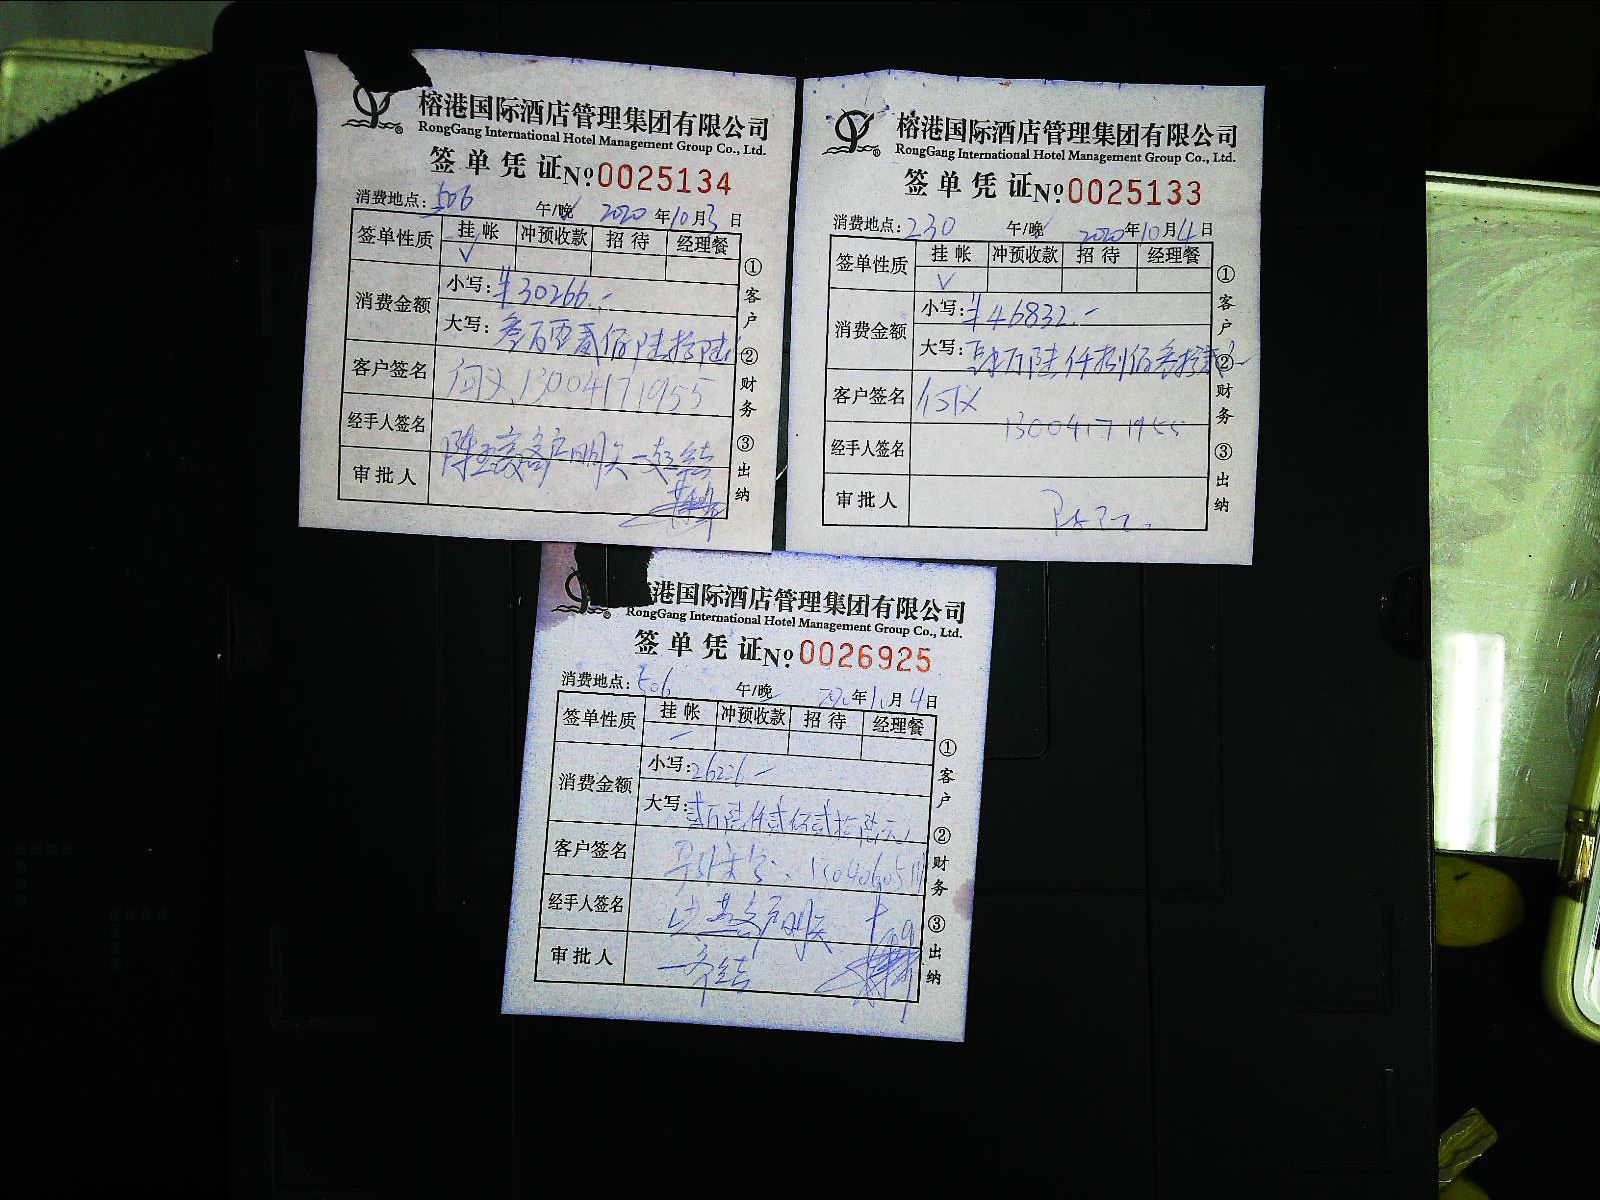 榕港国际酒店管理集团有限公司
RongGang International Hotel Management Group Co., Ltd.
签单凭证 №0025134
消费地点：506 午/晚 2020年10月3日
签单性质 挂帐 冲预收款 招待 经理餐
✓
消费金额 小写：¥30266.-
大写：叁万零贰佰陆拾陆
客户签名 何义、13004171955
经手人签名
客户明天一起结
审批人
①客户 ②财务 ③出纳
榕港国际酒店管理集团有限公司
RongGang International Hotel Management Group Co., Ltd.
签单凭证 №0025133
消费地点：230 午/晚 2020年10月4日
签单性质 挂帐 冲预收款 招待 经理餐
✓
消费金额 小写：¥46832.-
大写：肆万陆仟捌佰叁拾贰
客户签名 何义
13004171955
经手人签名
审批人
①客户 ②财务 ③出纳
港国际酒店管理集团有限公司
RongGang International Hotel Management Group Co., Ltd.
签单凭证 №0026925
消费地点：506 午/晚 2020年10月4日
签单性质 挂帐 冲预收款 招待 经理餐
消费金额 小写：26226-
大写：贰万陆仟贰佰贰拾陆元
客户签名
经手人签名 客户明天
审批人 一齐结
①客户 ②财务 ③出纳